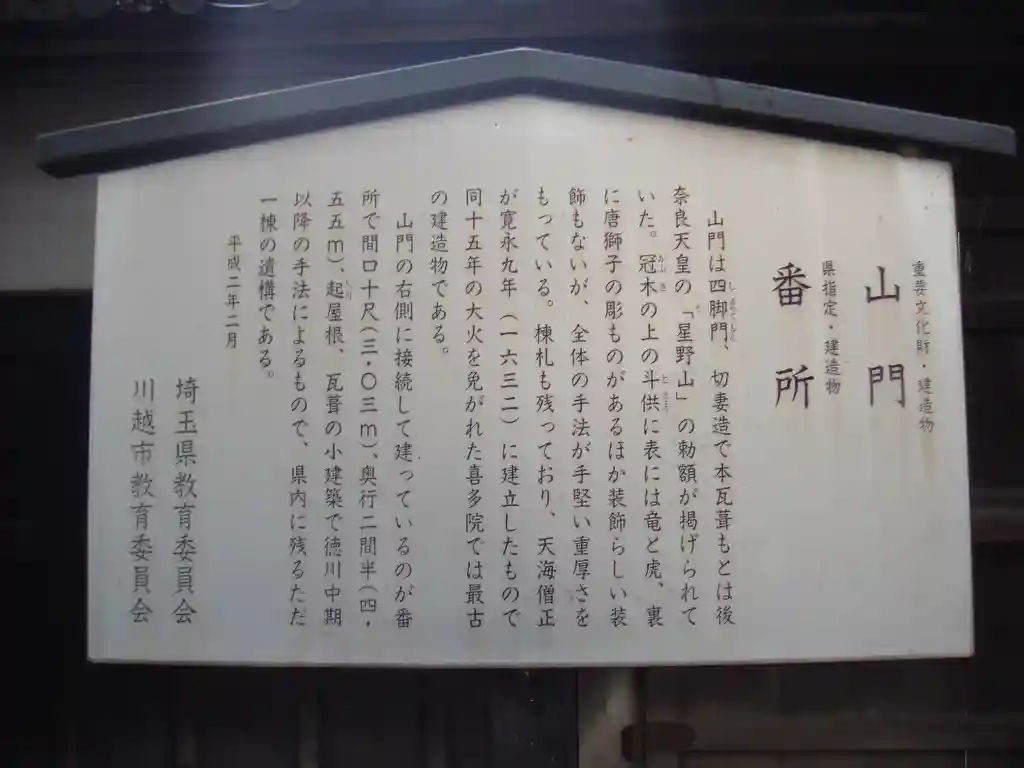 重要文化財・建造物
山門
県指定・建造物
番所
山門は四脚門、切妻造で本瓦葺もとは後
奈良天皇の「星野山」の勅額が掲げられて
いた。冠木の上の斗供に表には竜と虎、裏
に唐獅子の彫ものがあるほか装飾らしい装
飾もないが、全体の手法が手堅い重厚さを
もっている。棟札も残っており、天海僧正
が寛永九年（一六三二）に建立したもので
同十五年の大火を免がれた喜多院では最古
の建造物である。
山門の右側に接続して建っているのが番
所で間口十尺（三・〇三ｍ）、奥行二間半（四・
五五ｍ）、起屋根、瓦葺の小建築で徳川中期
以降の手法によるもので、県内に残るただ
一棟の遺構である。
平成二年二月
埼玉県教育委員会
川越市教育委員会